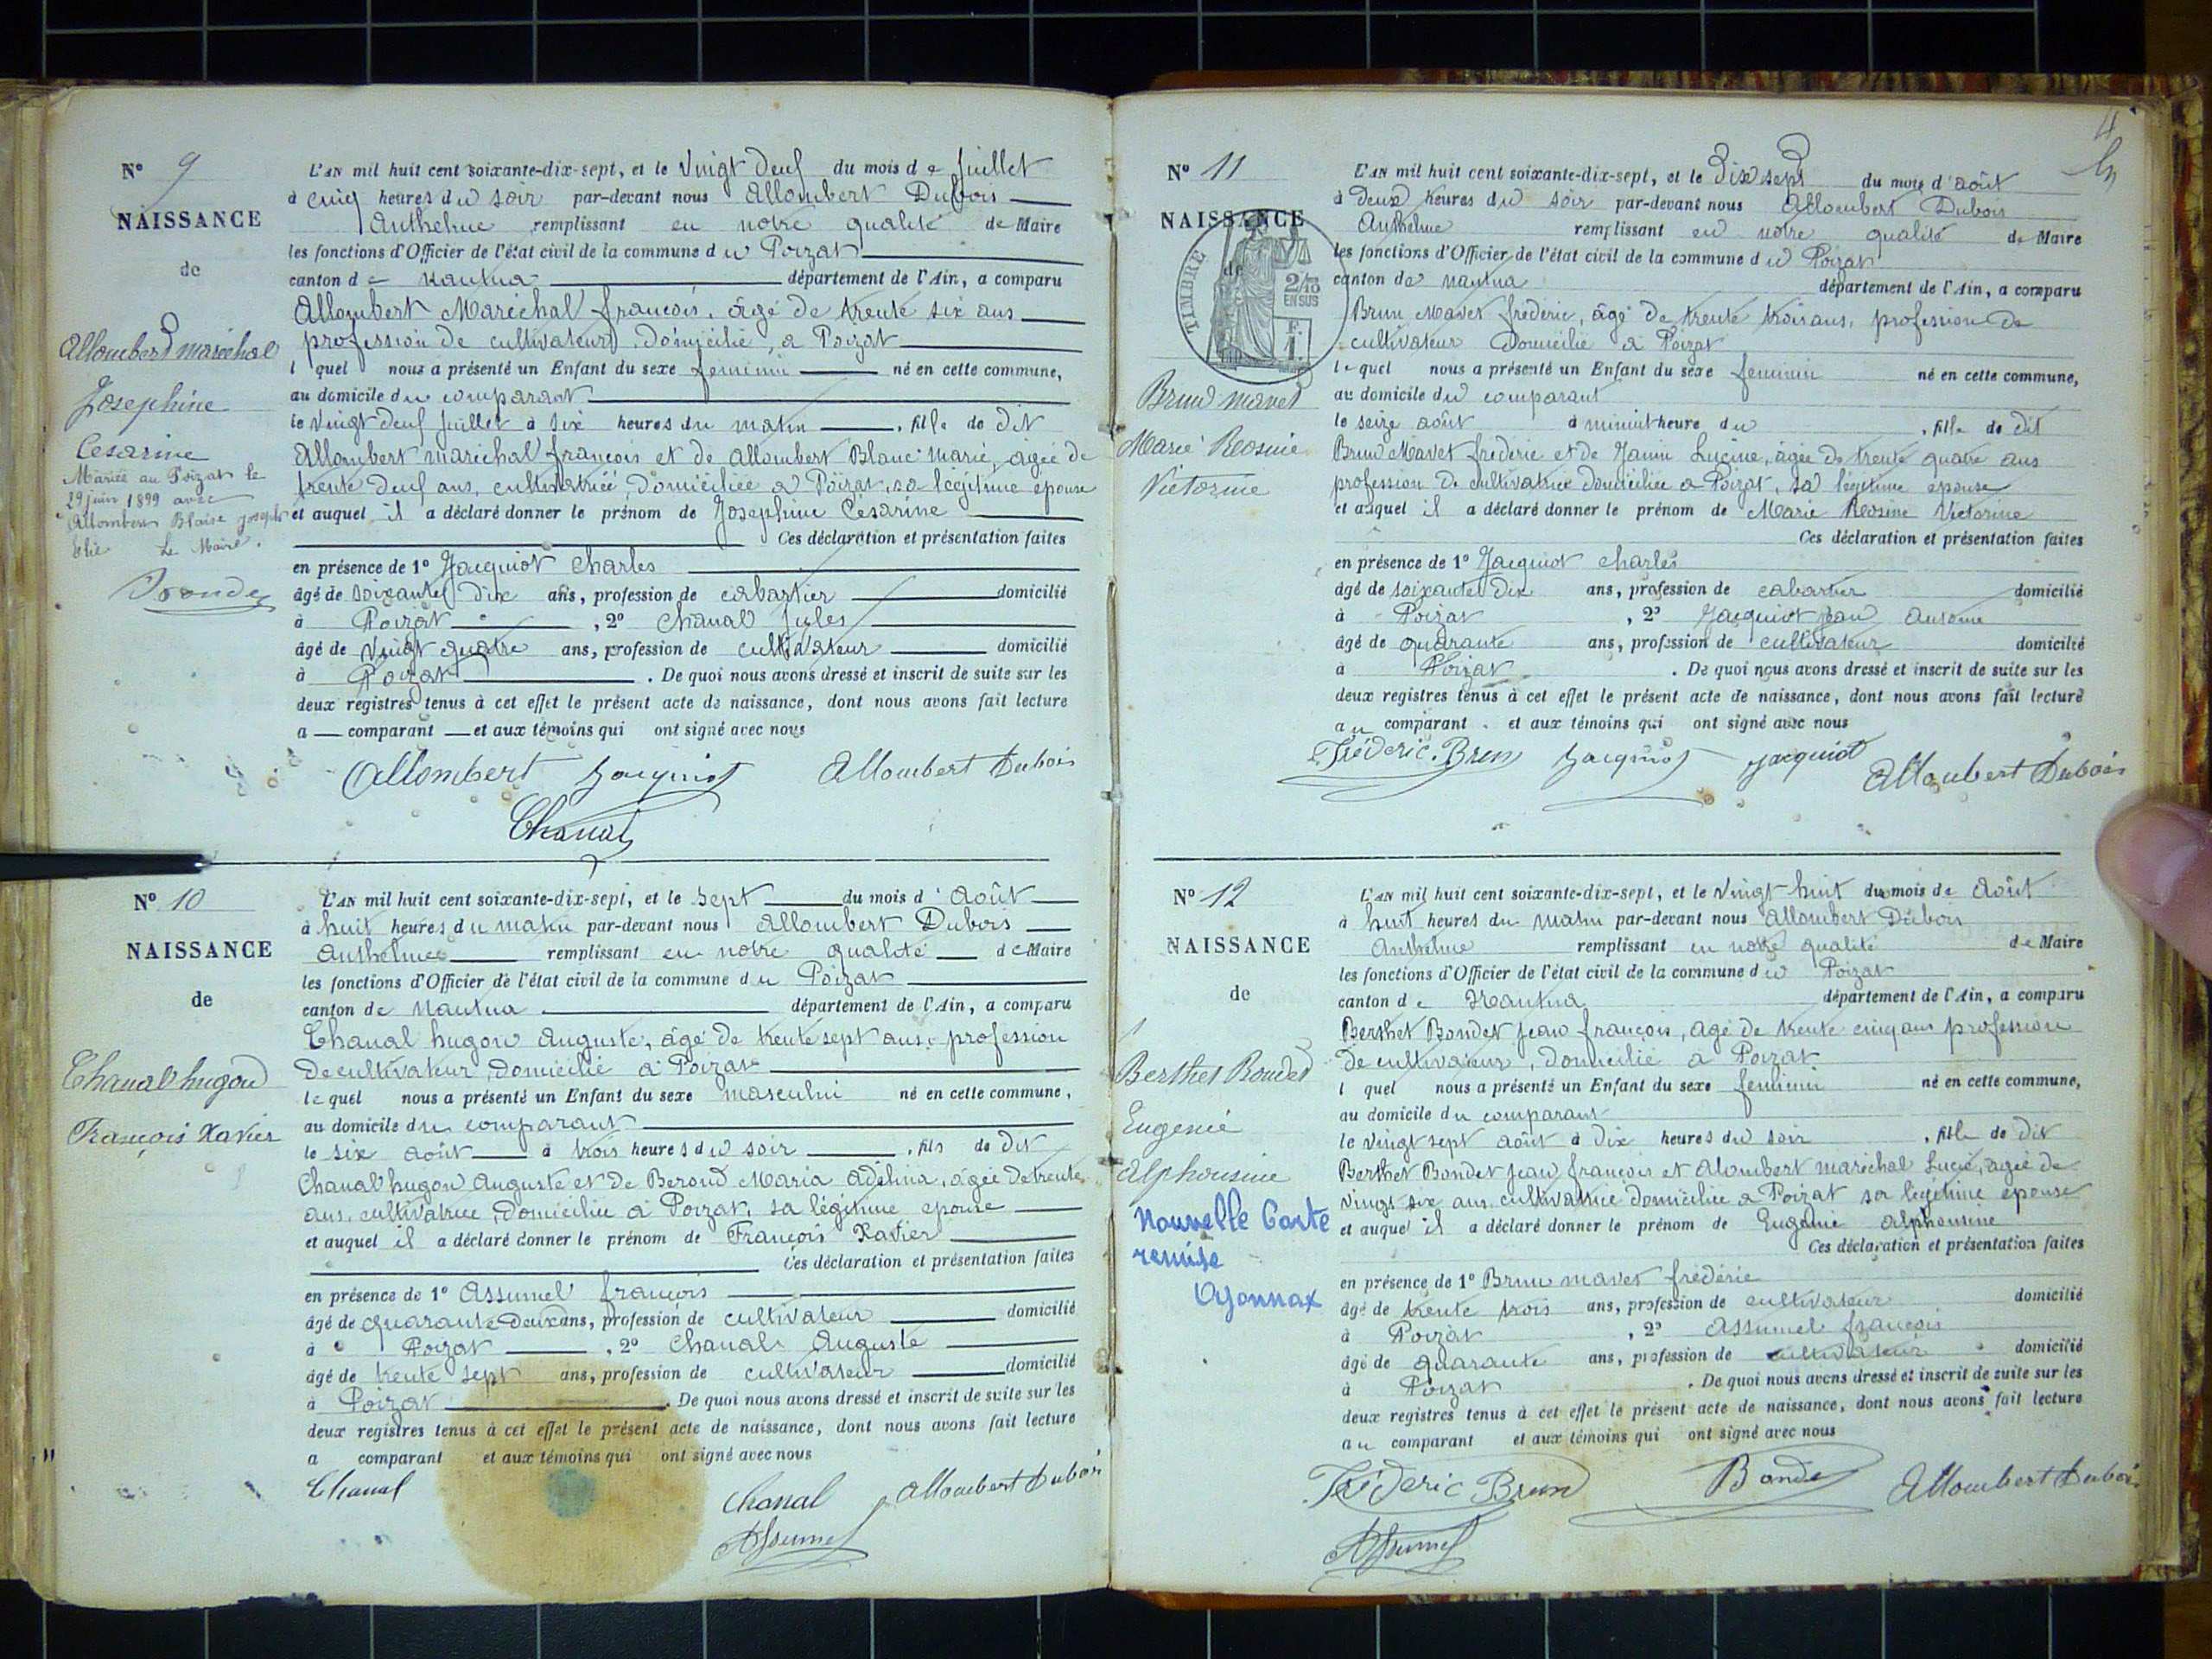 N° 9
NAISSANCE
de
Allombert marechal
Josephine
Cesarine
Mariée au Poizat le
29 juin 1899 avec
Allombert Blaise joseph
Elie Le Maire.
L'AN mil huit cent soixante-dix-sept, et le Vingt Deuf du mois de Juillet
à cinq heures du soir par-devant nous Allombert Dubois
Anthelme remplissant en notre qualité de Maire
les fonctions d'Officier de l'état civil de la commune du Poizat
canton de Nantua département de l'Ain, a comparu
Allombert Maréchal françois, âgé de trente six ans
profession de cultivateur, domicilié, a Poizat
l quel nous a présenté un Enfant du sexe feminin né en cette commune,
au domicile du comparant
le Vingt deuf Juillet à six heures du matin, fille de dit
Allombert marechal françois et de Allombert Blanc marie, agée de
trente deuf ans, cultivatrice, domiciliée a Poizat, sa légitime epouse
et auquel il a déclaré donner le prénom de Josephine Césarine
Ces déclaration et présentation faites
en présence de 1° Jacquiot Charles
âgé de soixante Dix ans, profession de cabartier domicilié
à Poizat, 2° Chanal Jules
âgé de Vingt quatre ans, profession de cultivateur domicilié
à Poizat. De quoi nous avons dressé et inscrit de suite sur les
deux registres tenus à cet effet le présent acte de naissance, dont nous avons fait lecture
a comparant et aux témoins qui ont signé avec nous
Allombert Jacquiot Allombert Dubois
Chanal
N° 10
NAISSANCE
de
Chanal hugon
François Xavier
L'AN mil huit cent soixante-dix-sept, et le sept du mois d'Août
à huit heures du matin par-devant nous Allombert Dubois
Anthelme remplissant en notre qualité de Maire
les fonctions d'Officier de l'état civil de la commune du Poizat
canton de Nantua département de l'Ain, a comparu
Chanal hugon Auguste, âgé de trente sept ans, profession
De cultivateur, domicilié a Poizat
le quel nous a présenté un Enfant du sexe masculin né en cette commune,
au domicile du comparant
le six août à trois heures du soir, fils de dit
Chanal hugon Auguste et de Beroud Maria Adelina, agée de trente
ans, cultivatrice, domiciliée a Poizat, sa légitime epouse
et auquel il a déclaré donner le prénom de François Xavier
Ces déclaration et présentation faites
en présence de 1° Assumel françois
âgé de quarante Deux ans, profession de cultivateur domicilié
à Poizat, 2° Chanal Auguste
âgé de trente sept ans, profession de cultivateur domicilié
à Poizat. De quoi nous avons dressé et inscrit de suite sur les
deux registres tenus à cet effet le présent acte de naissance, dont nous avons fait lecture
a comparant et aux témoins qui ont signé avec nous
Chanal Chanal Allombert Dubois
Assumel
4
N° 11
NAISSANCE
de
TIMBRE
2/10
EN SUS
Brun mavet
Marie Rosine
Victorine
L'AN mil huit cent soixante-dix-sept, et le Dix sept du mois d'août
à Deux heures du soir par-devant nous Allombert Dubois
Anthelme remplissant en notre qualité de Maire
les fonctions d'Officier de l'état civil de la commune du Poizat
canton de nantua département de l'Ain, a comparu
Brun Mavet frédéric, âgé de trente trois ans, profession De
cultivateur Domicilié a Poizat
le quel nous a présenté un Enfant du sexe feminin né en cette commune,
au domicile du comparant
le seize août à minuit heure du, fille de dit
Brun Mavet frederic et de Janin Lucine, agée de trente quatre ans
profession De cultivatrice domiciliée a Poizat, sa legitime epouse
et auquel il a déclaré donner le prénom de Marie Rosine Victorine
Ces déclaration et présentation faites
en présence de 1° Jacquiot Charles
âgé de soixante Dix ans, profession de cabartier domicilié
à Poizat, 2° Jacquiot Jean Antoine
âgé de quarante ans, profession de cultivateur domicilié
à Poizat. De quoi nous avons dressé et inscrit de suite sur les
deux registres tenus à cet effet le présent acte de naissance, dont nous avons fait lecture
au comparant et aux témoins qui ont signé avec nous
Fréderic Brun Jacquiot Jacquiot Allombert Dubois
N° 12
NAISSANCE
de
Berthet Bondet
Eugenie
Alphonsine
Nouvelle Carte
remise
Oyonnax
L'AN mil huit cent soixante-dix-sept, et le Vingt-huit du mois de Août
à huit heures du matin par-devant nous Allombert Dubois
Anthelme remplissant en notre qualité de Maire
les fonctions d'Officier de l'état civil de la commune du Poizat
canton de Nantua département de l'Ain, a comparu
Berthet Bondet Jean françois, agé de trente cinq ans profession
de cultivateur, domicilié a Poizat
l quel nous a présenté un Enfant du sexe feminin né en cette commune,
au domicile du comparant
le vingt sept août à Dix heures du soir, fille de Dit
Berthet Bondet Jean françois et Alombert maréchal Lucie, agée de
vingt six ans cultivatrice domiciliée a Poizat sa legitime epouse
et auquel il a déclaré donner le prénom de Eugenie Alphonsine
Ces déclaration et présentation faites
en présence de 1° Brun mavet frédéric
âgé de trente trois ans, profession de cultivateur domicilié
à Poizat, 2° Assumel françois
âgé de quarante ans, profession de cultivateur domicilié
à Poizat. De quoi nous avons dressé et inscrit de suite sur les
deux registres tenus à cet effet le présent acte de naissance, dont nous avons fait lecture
au comparant et aux témoins qui ont signé avec nous
Fréderic Brun Bondet Allombert Dubois
Assumel